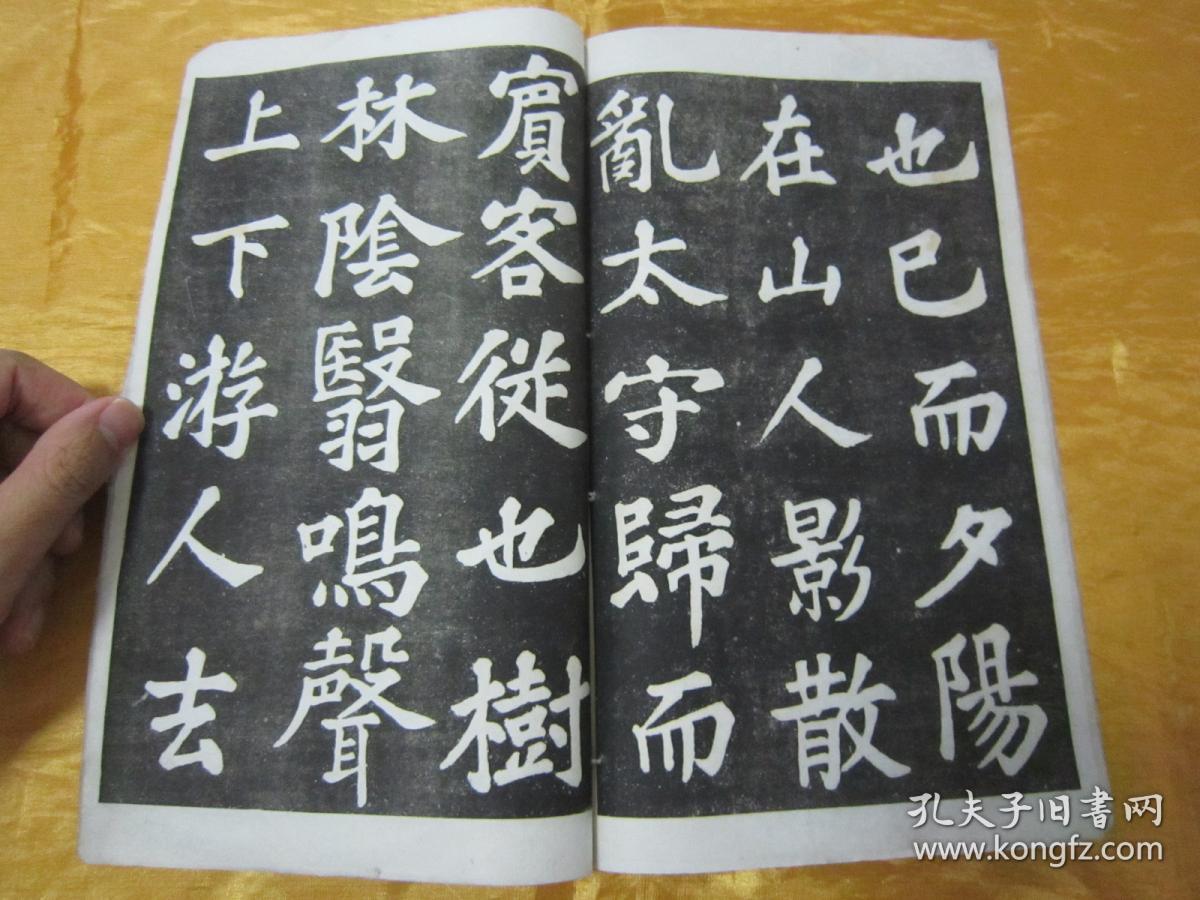 也已而夕陽
在山人影散
亂太守歸而
賓客從也樹
林陰翳鳴聲
上下游人去
孔夫子旧書网
www.kongfz.com